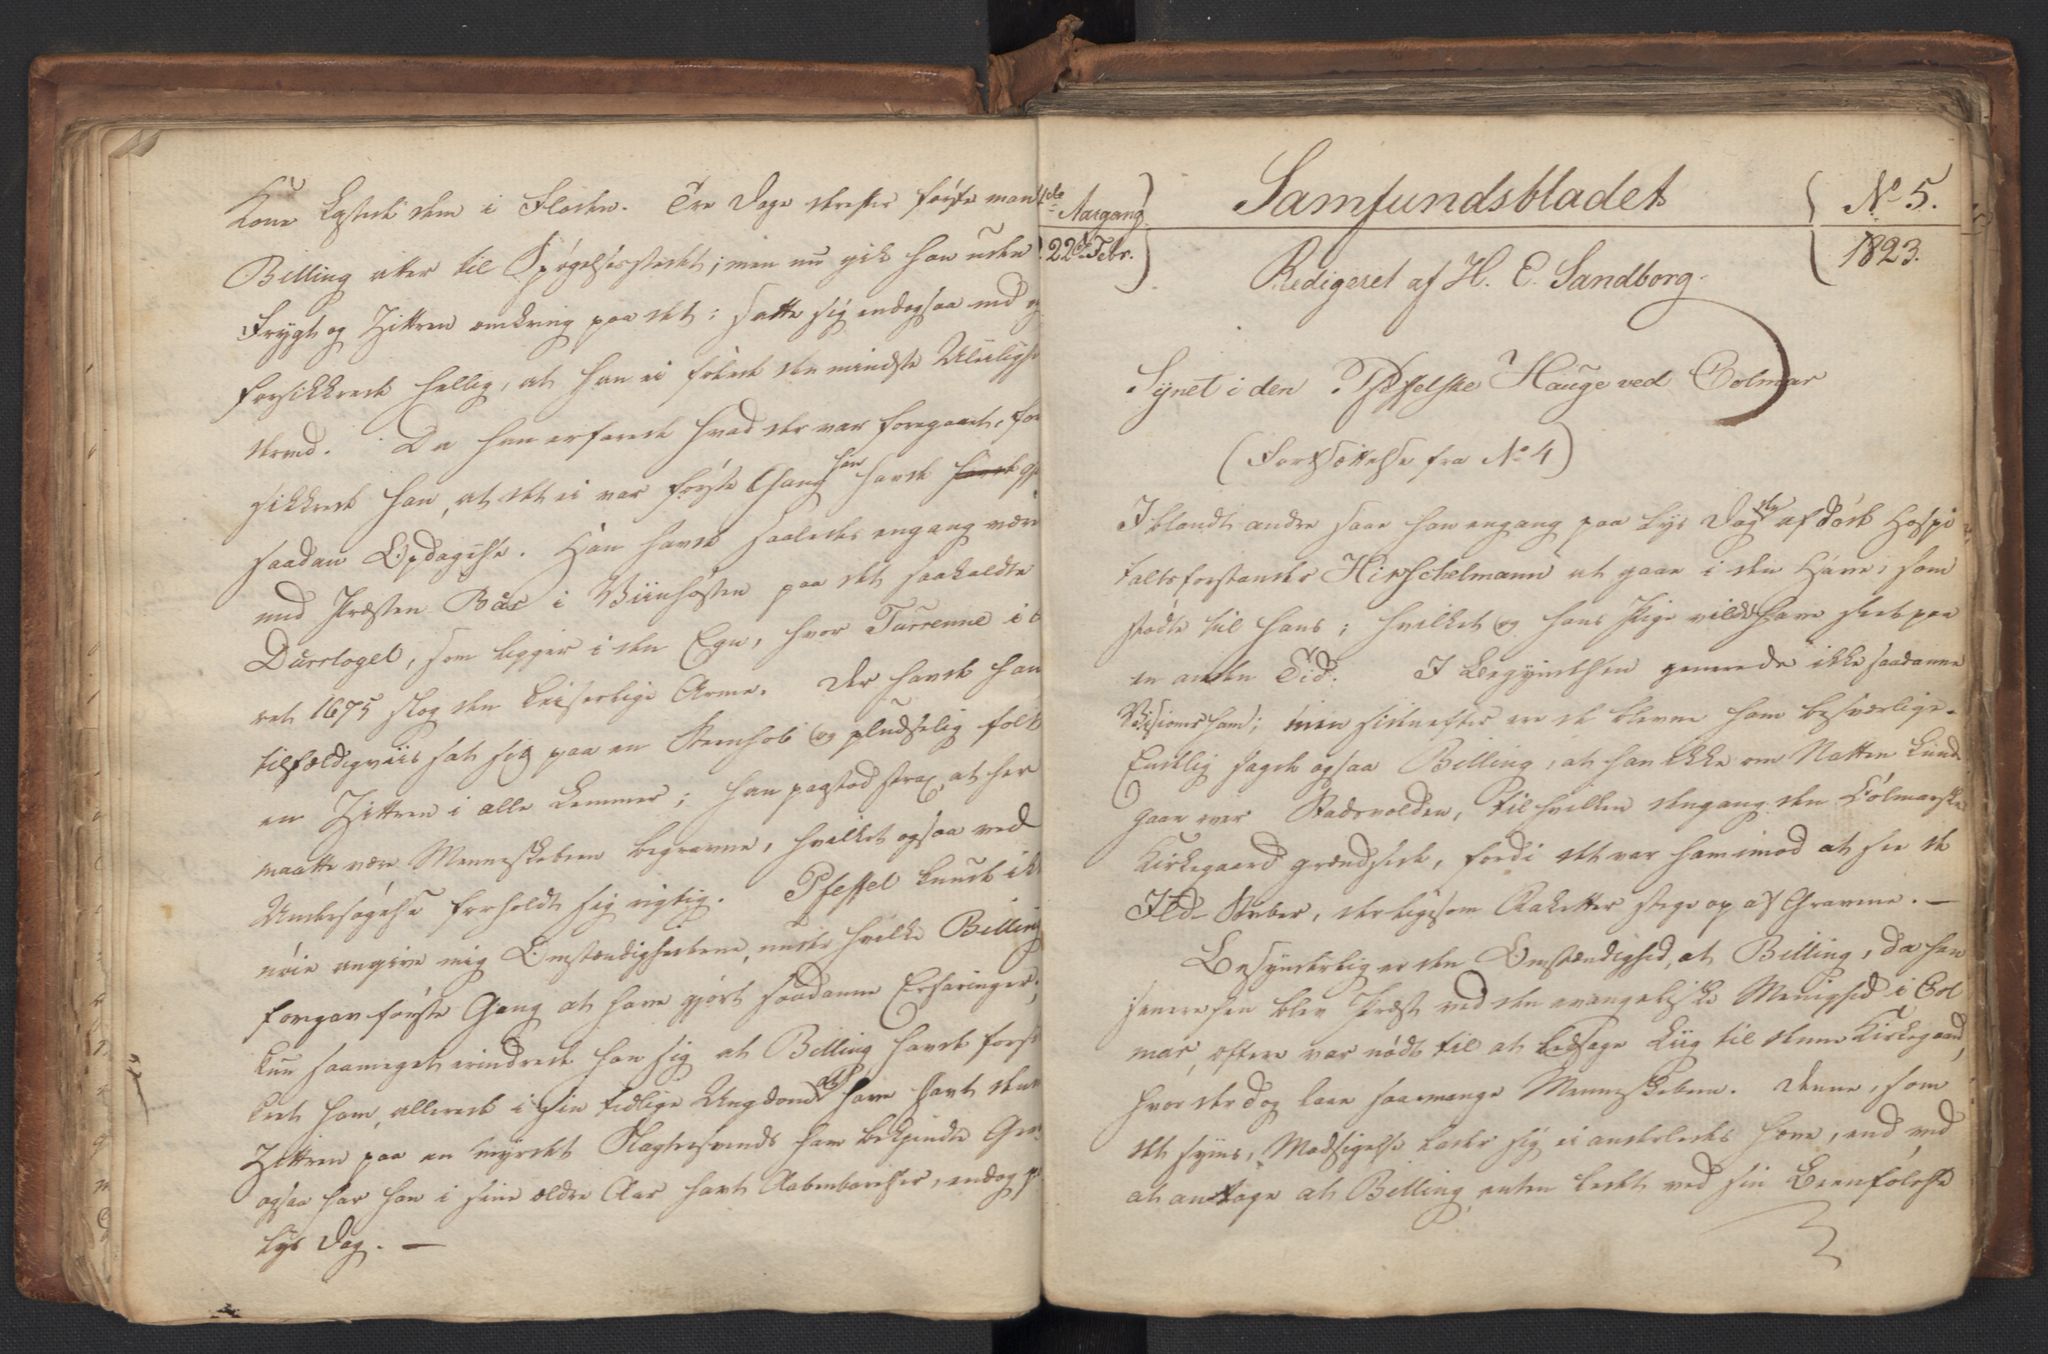 Kone kastede dem i Floden. Tre Dage derefter førte man
Billing atter til Spøgelsesstedet; men nu gik han uden
Frygt og Zittren omkring paa det; satte sig endogsaa ned og
forsikkrede hellig, at han ei følede den mindste Uleilighe
derved. Da han erfarede hvad der var foregaaet, for
sikkrede han, at det ei var første Gang han havde havde gjo
saadan Opdagelse. Han havde saaledes engang være
med Præsten Bär i Viinhøsten paa det saakaldte
Durrlogel, som ligger i den Egn, hvor Turrenne i
ret 1675 slog den keiserlige Arme. Der havde han
tilfældigviis sat sig paa en Steenhob og pludselig følt
en Zittren i alle Lemmer; han paastod strax, at her
maatte være Menneskebeen begravne, hvilket ogsaa ved
Undersøgelse forholdt sig rigtig. Pfeffel kunde ik
nøie angive mig Omstændighederne, under hvilke Billing
forgav første Gang at have gjort saadanne Erfaringer;
kun saameget erindrede han sig at Billing havde forsi
kret ham, allerede i sin tidlige Ungdom at have havt denne
Zittren paa en myrdet Slagtersvends ham bekjendte Grav.
ogsaa har han i sine ældre Aar havt Aabenbarelser, endog p
lys Dag. —
1ste Aargang
Samfundsbladet
No 5.
22de Febr.
Redigeret af H. E. Sandborg.
1823.
Synet i den Pfeffelske Hauge ved Colmar
(Fortsættelse fra No 4)
Iblandt andre saae han engang paa lys Dag den afdøde Hospi
talsforstander Hirschelmann at gaae i den Have, som
stødte til hans; hvilket og hans Pige vilde have seet paa
en anden Tid. I Begyndelsen generede ikke saadanne
Visioner ham; men sidenefter ere de blevne ham besværlige.
Endelig sagde ogsaa Billing, at han ikke om Natten kunde
gaae over Stadsvolden, til hvilken dengang den Colmarske
Kirkegaard grændsede, fordi det var ham imod at see de
Ild-Striber, der ligesom Raketter stege op af Gravene. —
Besynderlig er den Omstændighed, at Billing, da han
senere hen blev Præst ved den evangeliske Menighed i Col
mar, oftere var nødt til at ledsage Liig til denne Kirkegaard,
hvor der dog laae saa mange Menneskebeen. Denne, som
det synes, Modsigelse lader sig ei anderledes hæve, end ved
at antage at Billing, enten ledt ved sin